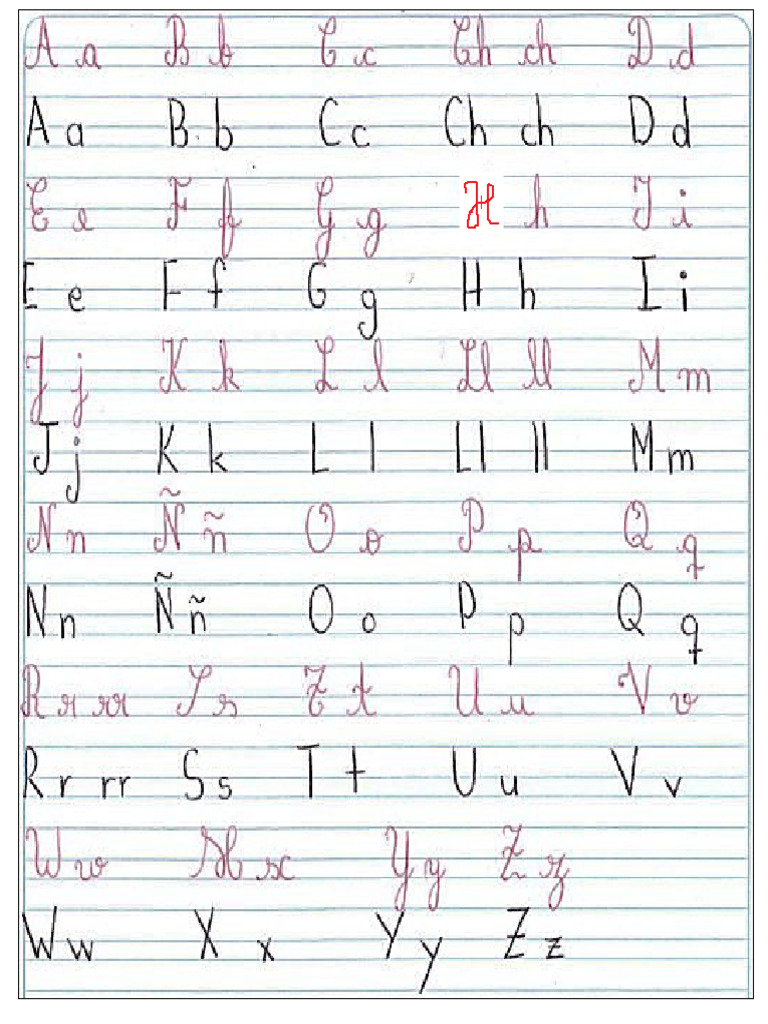 A a B b C c Ch ch D d
A a B b C c Ch ch D d
E e F f G g H h I i
E e F f G g H h I i
J j K k L l Ll ll M m
J j K k L l Ll ll M m
N n Ñ ñ O o P p Q q
N n Ñ ñ O o P p Q q
R r rr S s T t U u V v
R r rr S s T t U u V v
W w X x Y y Z z
W w X x Y y Z z